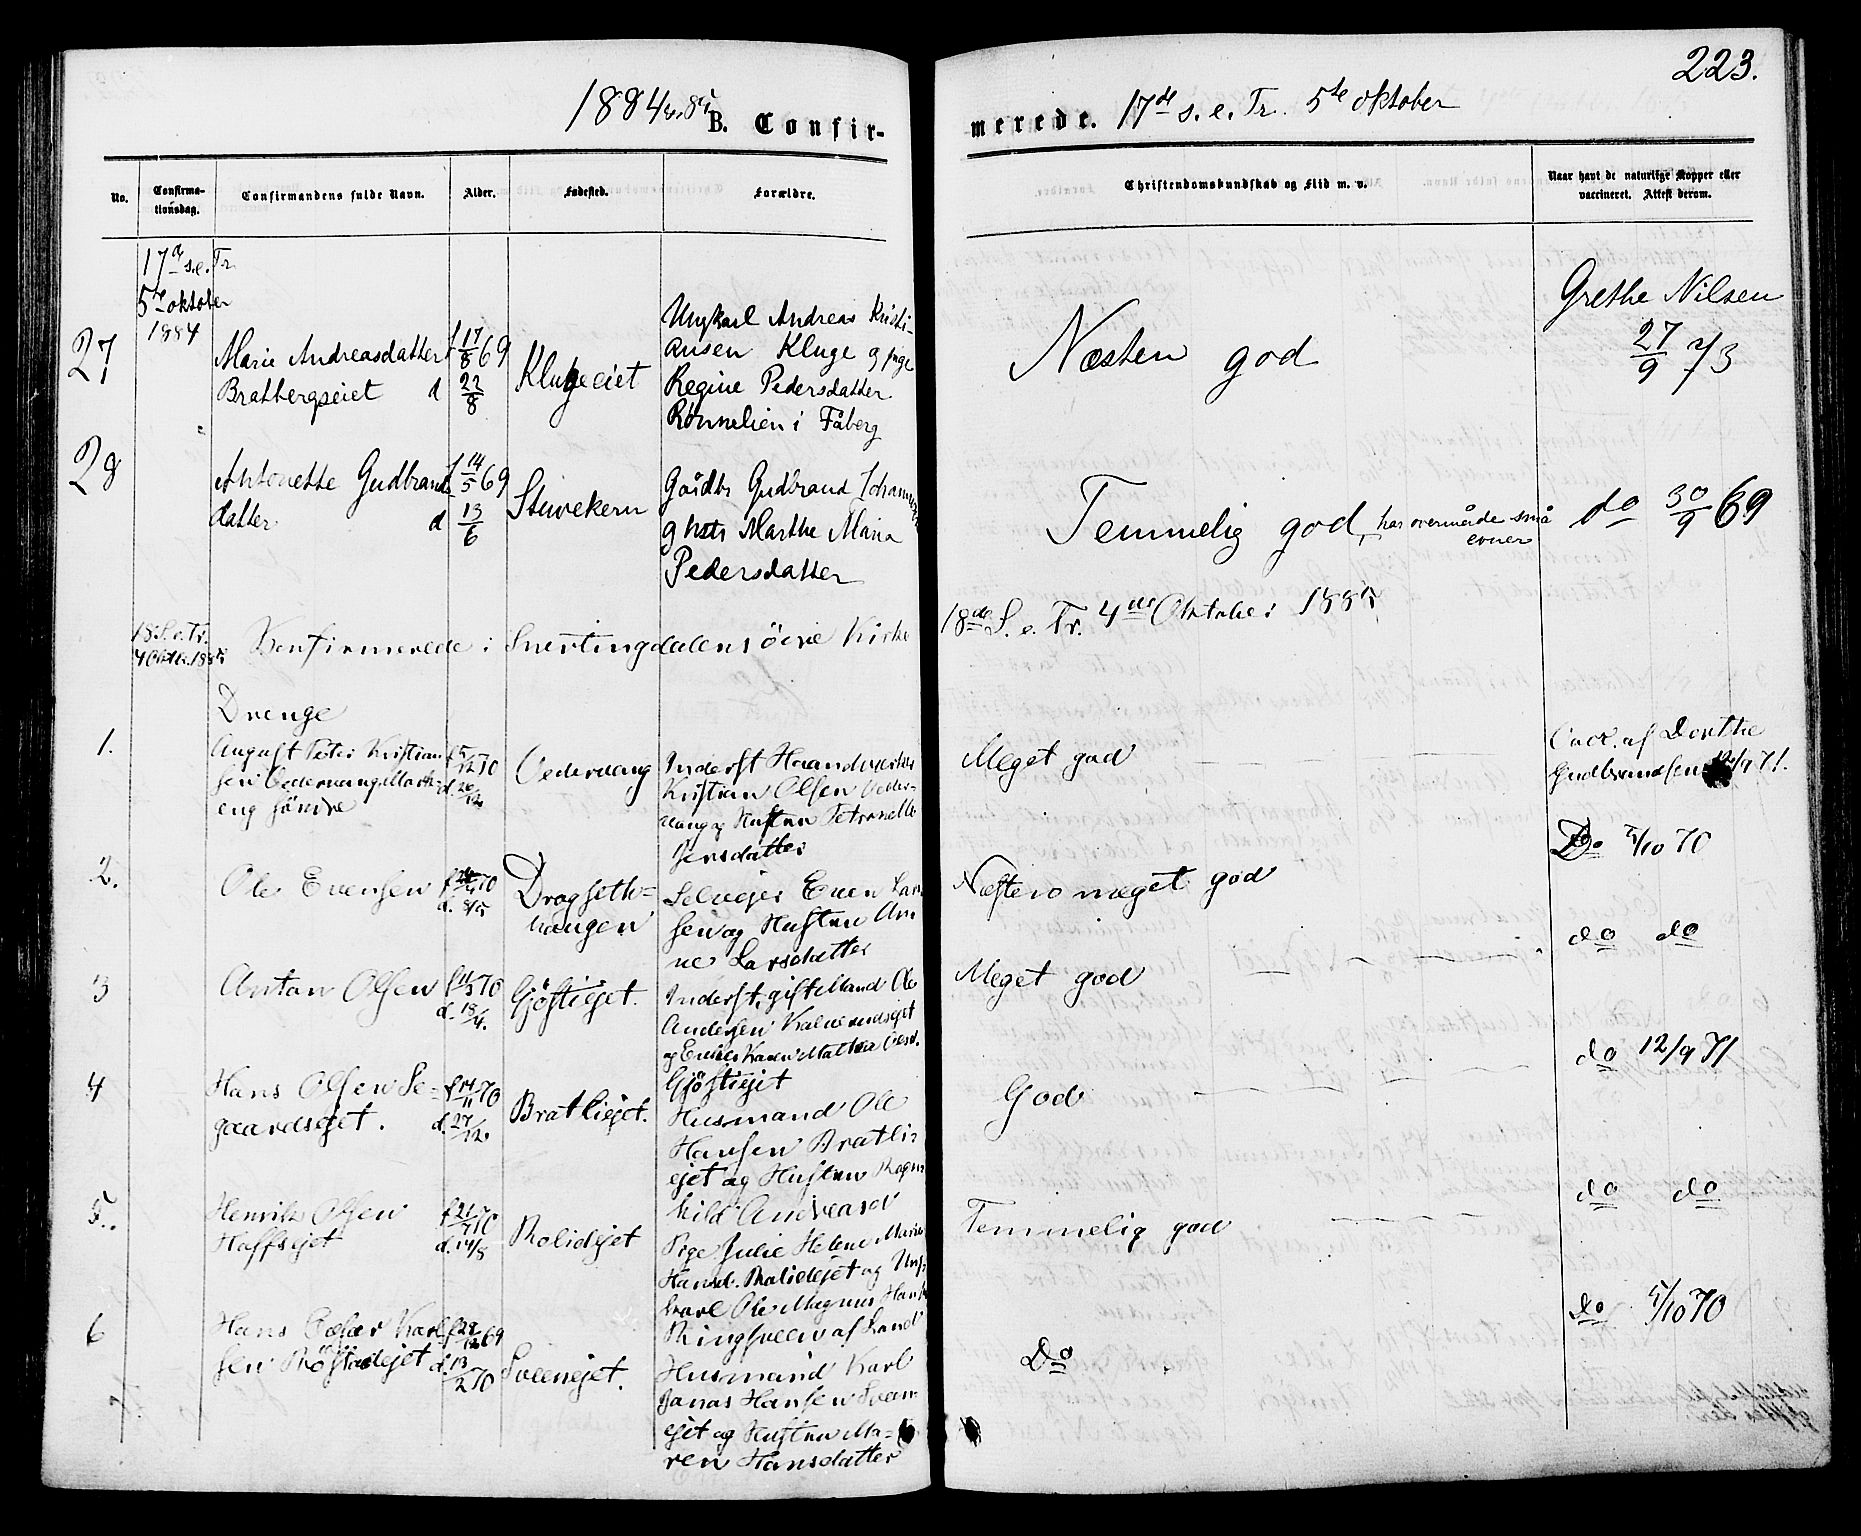 223.
1884 & 85 B. Confir-
merede. 17de s. e. Tr. 5te oktober
No.
Confirma-
tionsdag.
Confirmandens fulde Navn.
Alder.
Fødested.
Forældre.
Christendomskundskab og Flid m. v.
Naar havt de naturlige Kopper eller
vaccineret. Attest derom.
17de s.e. Tr
5te oktober
1884
27
Marie Andreasdatter
Bratbergseiet
f 17/8 69
d 22/8
Klugeeiet
Ungkarl Andreas Kristi-
ansen Kluge og pige
Regine Pedersdatter
Rønnelien i Fåberg
Næsten god
Grethe Nilsen
27/9 73
28
Antonette Gudbrands
datter
f 14/5 69
d 13/6
Stuvekern
Gårdbr Gudbrand Johannesen
g hstr Marthe Maria
Pedersdatter
Temmelig god, har overmåde små
evner
do 30/9 69
18 S. e. Tr.
4 Oktbr. 1885
Konfirmerede i Snertingdalens öivre Kirke
18de S. e. Tr. 4de Oktober 1885
Drenge
1.
August Peter Kristian
sen
f 5/12 70
d. 26/12
Vedervang
Inderst Haandværker
Kristian Olsen Veder-
vang og Hustru Petronelle
Jensdatter
Meget god
Vacc. af Dorthe
Gudbrandsen 12/9 71.
2.
Ole Evensen
d. 8/5
Dragseth-
haugen
Selveier Even Lar
sen og Hustru An
ne Larsdatter
Næsten meget god
Do 5/10 70
3
Anton Olsen
f 11/3 70
d. 18/4.
Gjøstiejet.
Inderst, gift Mand Ole
Andersen
Gjøstiejet
Meget god
do do
4
Hans Olsen Se-
gaardsejet.
f 14/11 70
d. 27/12.
Bratliejet.
Husmand Ole
Hansen Bratli-
ejet og Hustru Ragn
hild Andreasd
God
do 12/9 71
5.
Henrik Olsen
Haffsejet
f 21/7 70
d. 14/8
Rolidejet
Pige Julie Helene Marie
Hansd. Rolidejet og Ung
karl Ole Magnus Hans
Ringsveen af Land
Temmelig god
do do
6
Hans Oskar Karl
sen
f 28/12 69
d. 13/2 70
Sveenejet.
Husmand Karl
Jonas Hansen Sveen
ejet og Hustru Ma-
ren Hansdatter
Do
do 5/10 70